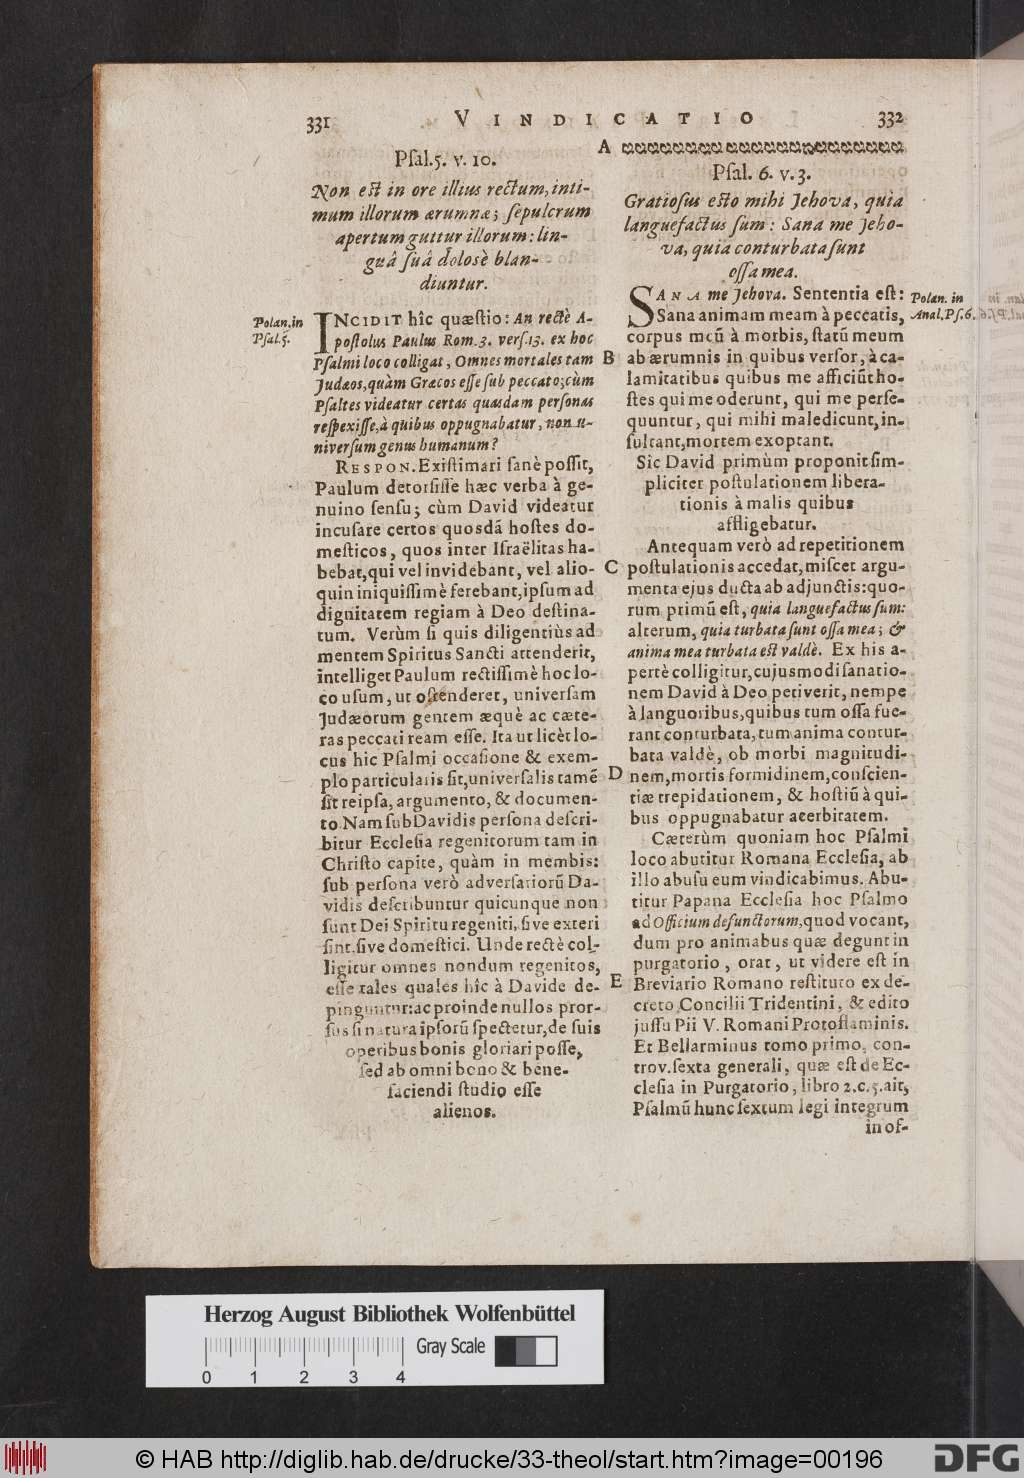 331
VINDICATIO
332
Pſal.5. v. 10.
Non eſt in ore illius rectum, inti-
mum illorum ærumnæ; ſepulcrum
apertum guttur illorum: lin-
guâ ſuâ dolosè blan-
diuntur.
Polan.in
Pſal.5.
INCIDIT hîc quæſtio: An rectè A-
poſtolus Paulus Rom.3. verſ.13. ex hoc
Pſalmi loco colligat, Omnes mortales tam
Judæos, quàm Græcos eſſe ſub peccato; cùm
Pſaltes videatur certas quasdam perſonas
reſpexiſſe, à quibus oppugnabatur, non u-
niverſum genus humanum?
RESPON. Exiſtimari ſanè poſſit,
Paulum detorſiſſe hæc verba à ge-
nuino ſenſu; cùm David videatur
incuſare certos quosdã hoſtes do-
meſticos, quos inter Iſraëlitas ha-
bebat, qui vel invidebant, vel alio-
quin iniquiſſimè ferebant, ipſum ad
dignitatem regiam à Deo deſtina-
tum. Verùm ſi quis diligentiùs ad
mentem Spiritus Sancti attenderit,
intelliget Paulum rectiſſimè hoc lo-
co uſum, ut oſtenderet, univerſam
Judæorum gentem æquè ac cæte-
ras peccati ream eſſe. Ita ut licèt lo-
cus hic Pſalmi occaſione & exem-
plo particularis ſit, univerſalis tamẽ
ſit reipſa, argumento, & documen-
to. Nam ſub Davidis perſona deſcri-
bitur Eccleſia regenitorum tam in
Chriſto capite, quàm in membis:
ſub perſona verò adverſariorũ Da-
vidis deſcribuntur quicunque non
ſunt Dei Spiritu regeniti, ſive exteri
ſint, ſive domeſtici. Unde rectè col-
ligitur omnes nondum regenitos,
eſſe tales quales hîc à Davide de-
pinguntur: ac proinde nullos pror-
ſus ſi natura ipſorũ ſpectetur, de ſuis
operibus bonis gloriari poſſe,
ſed ab omni bono & bene-
faciendi ſtudio eſſe
alienos.
A
B
C
D
E
Pſal. 6. v.3.
Gratioſus eſto mihi Jehova, quia
languefactus ſum: Sana me Jeho-
va, quia conturbata ſunt
oſſa mea.
Polan. in
Anal.Pſ.6.
SANA me Jehova. Sententia eſt:
Sana animam meam à peccatis,
corpus meũ à morbis, ſtatũ meum
ab ærumnis in quibus verſor, à ca-
lamitatibus quibus me afficiũt ho-
ſtes qui me oderunt, qui me perſe-
quuntur, qui mihi maledicunt, in-
ſultant, mortem exoptant.
Sic David primùm proponit ſim-
pliciter poſtulationem libera-
tionis à malis quibus
affligebatur.
Antequam verò ad repetitionem
poſtulationis accedat, miſcet argu-
menta ejus ducta ab adjunctis: quo-
rum primũ eſt, quia languefactus ſum:
alterum, quia turbata ſunt oſſa mea; &
anima mea turbata eſt valdè. Ex his a-
pertè colligitur, cujusmodi ſanatio-
nem David à Deo petiverit, nempe
à languoribus, quibus tum oſſa fue-
rant conturbata, tum anima contur-
bata valdè, ob morbi magnitudi-
nem, mortis formidinem, conſcien-
tiæ trepidationem, & hoſtiũ à qui-
bus oppugnabatur acerbitatem.
Cæterùm quoniam hoc Pſalmi
loco abutitur Romana Eccleſia, ab
illo abuſu eum vindicabimus. Abu-
titur Papana Eccleſia hoc Pſalmo
ad Officium defunctorum, quod vocant,
dum pro animabus quæ degunt in
purgatorio, orat, ut videre eſt in
Breviario Romano reſtituto ex de-
creto Concilii Tridentini, & edito
juſſu Pii V. Romani Protoflaminis.
Et Bellarminus tomo primo, con-
trov. ſexta generali, quæ eſt de Ec-
cleſia in Purgatorio, libro 2.c.5. ait,
Pſalmũ hunc ſextum legi integrum
in of-
Herzog August Bibliothek Wolfenbüttel
Gray Scale
0 1 2 3 4
© HAB http://diglib.hab.de/drucke/33-theol/start.htm?image=00196
DFG